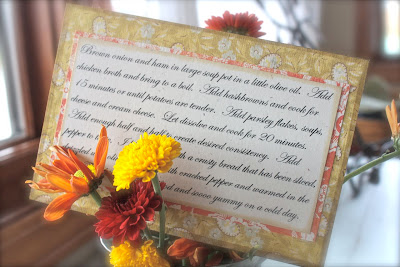 Brown onion and ham in large soup pot in a little olive oil. Add
chicken broth and bring to a boil. Add hashbrowns and cook for
15 minutes or until potatoes are tender. Add parsley flakes, soups,
cheese and cream cheese. Let dissolve and cook for 20 minutes.
Add enough half and half to create desired consistency. Add
pepper to with a crusty bread that has been sliced,
with cracked pepper and warmed in the
and sooo yummy on a cold day.